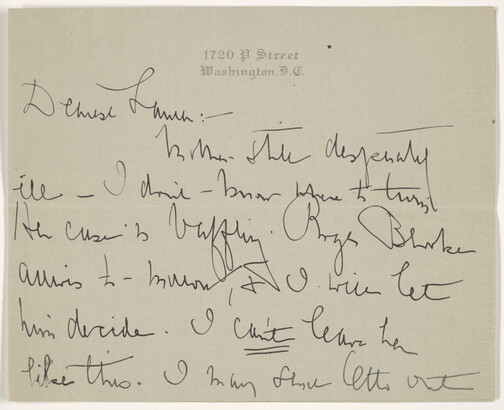 1720 P Street
Washington, D.C.
Dearest Laura:—
Mother still desperately
ill — I don't — know where to turn
Her case is baffling. Roger Brooke
arrives to-morrow, & I will let
him decide. I can't leave her
like this. I may send Otto out